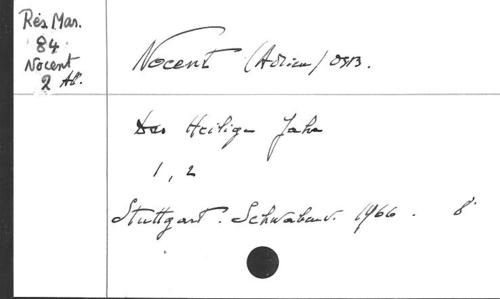 Rés. Mar.
84
Nocent
2 Ab.
Nocent (Adrien) OSB.
Das Heilige Jahr
1, 2
Stuttgart. Schwabenv. 1966. 8°